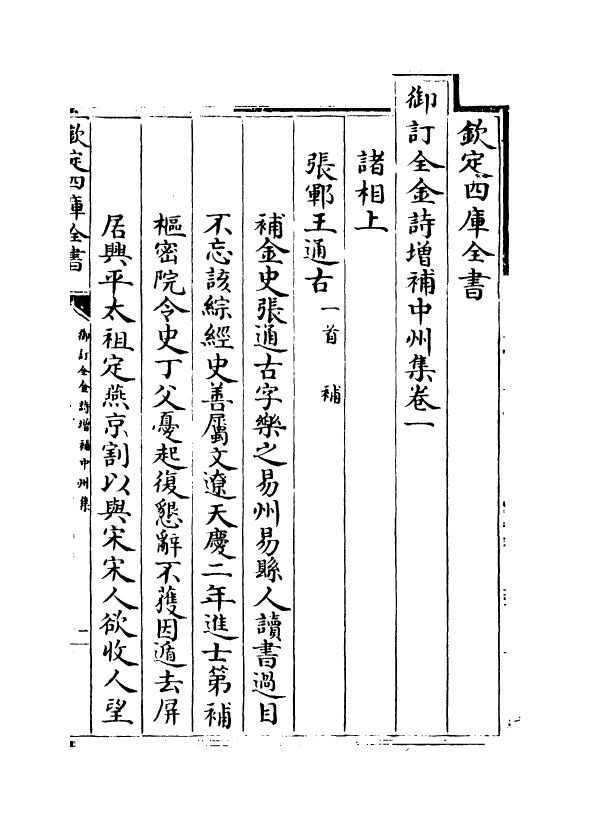 欽定四庫全書
御訂全金詩增補中州集卷一
諸相上
張鄆王通古 一首 補
補金史張通古字樂之易州易縣人讀書過目
不忘該綜經史善屬文遼天慶二年進士第補
樞密院令史丁父憂起復懇辭不獲因遁去屏
居興平太祖定燕京割以與宋宋人欲收人望
欽定四庫全書
御訂全金詩增補中州集